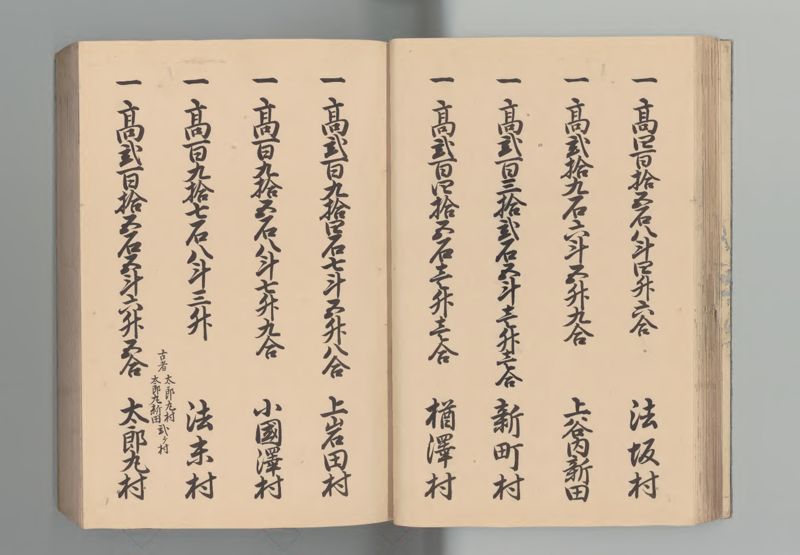 一 高四百拾五石八斗四升六合 法坂村
一 高弐拾九石六斗五升九合 上谷内新田
一 高弐百三拾弐石五斗壱升壱合 新町村
一 高弐百四拾五石壱升壱合 楢澤村
一 高弐百九拾四石七斗五升八合 上岩田村
一 高百九拾五石八斗七升九合 小國澤村
一 高百九拾七石八斗三升 法末村
古者 太郎丸村 太郎丸新田 弐ヶ村
一 高弐百拾五石五斗六升五合 太郎丸村